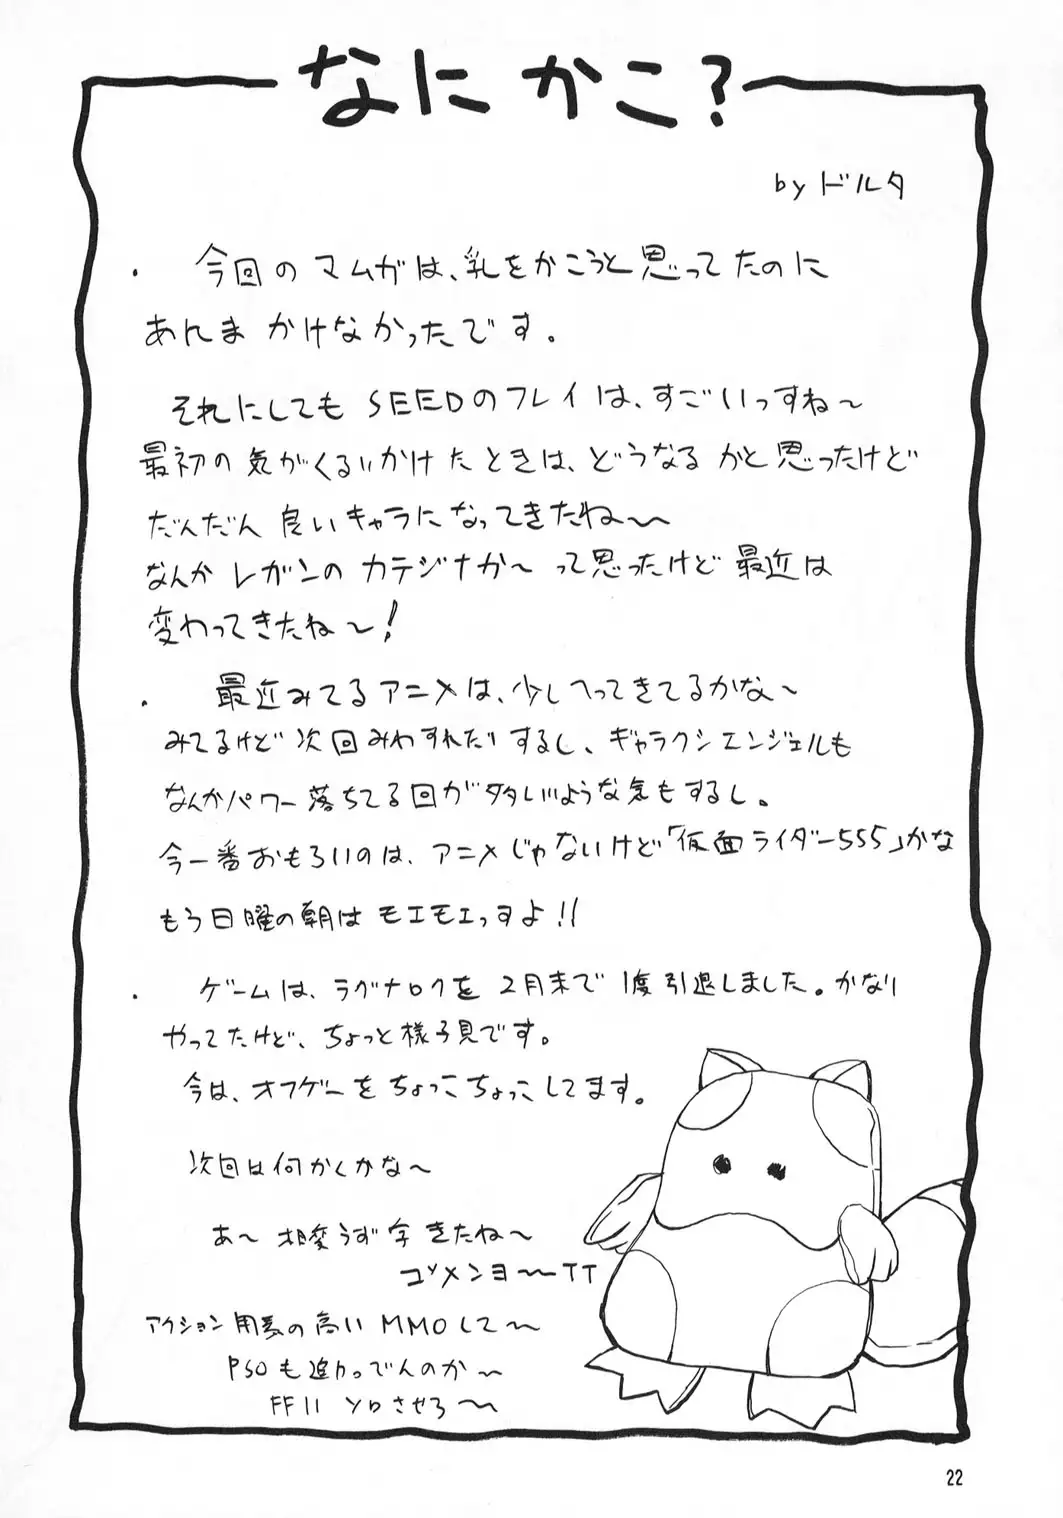 なに かこ?
by ドルタ
・ 今回のマムガは、乳をかこうと思ってたのに
あんま かけなかったです。
それにしても SEEDのフレイは、すごいっすね〜
最初の気がくるいかけたときは、どうなるかと思ったけど
だんだん 良いキャラになってきたね〜
なんか レガンの カテジナか〜 って思ったけど 最近は
変わってきたね〜!
・ 最近みてるアニメは、少しへってきてるかな〜
みてるけど 次回みわすれたりするし、ギャラクシエンジェルも
なんかパワー落ちてる回が多いような気もするし。
今一番おもろいのは、アニメじゃないけど「仮面ライダー555」かな
もう日曜の朝は モエモエっすよ!!
・ ゲームは、ラグナロクを 2月末で 1度引退しました。かなり
やってたけど、ちょっと様子見です。
今は、オフゲーをちょっこちょっこしてます。
次回は何かくかな〜
あ〜 相変うず字 きたね〜
ゴメンヨ〜〜TT
アクション用素の高い MMOして〜
PSOも追加っでんのか〜
FF11 ソロさせろ〜
22